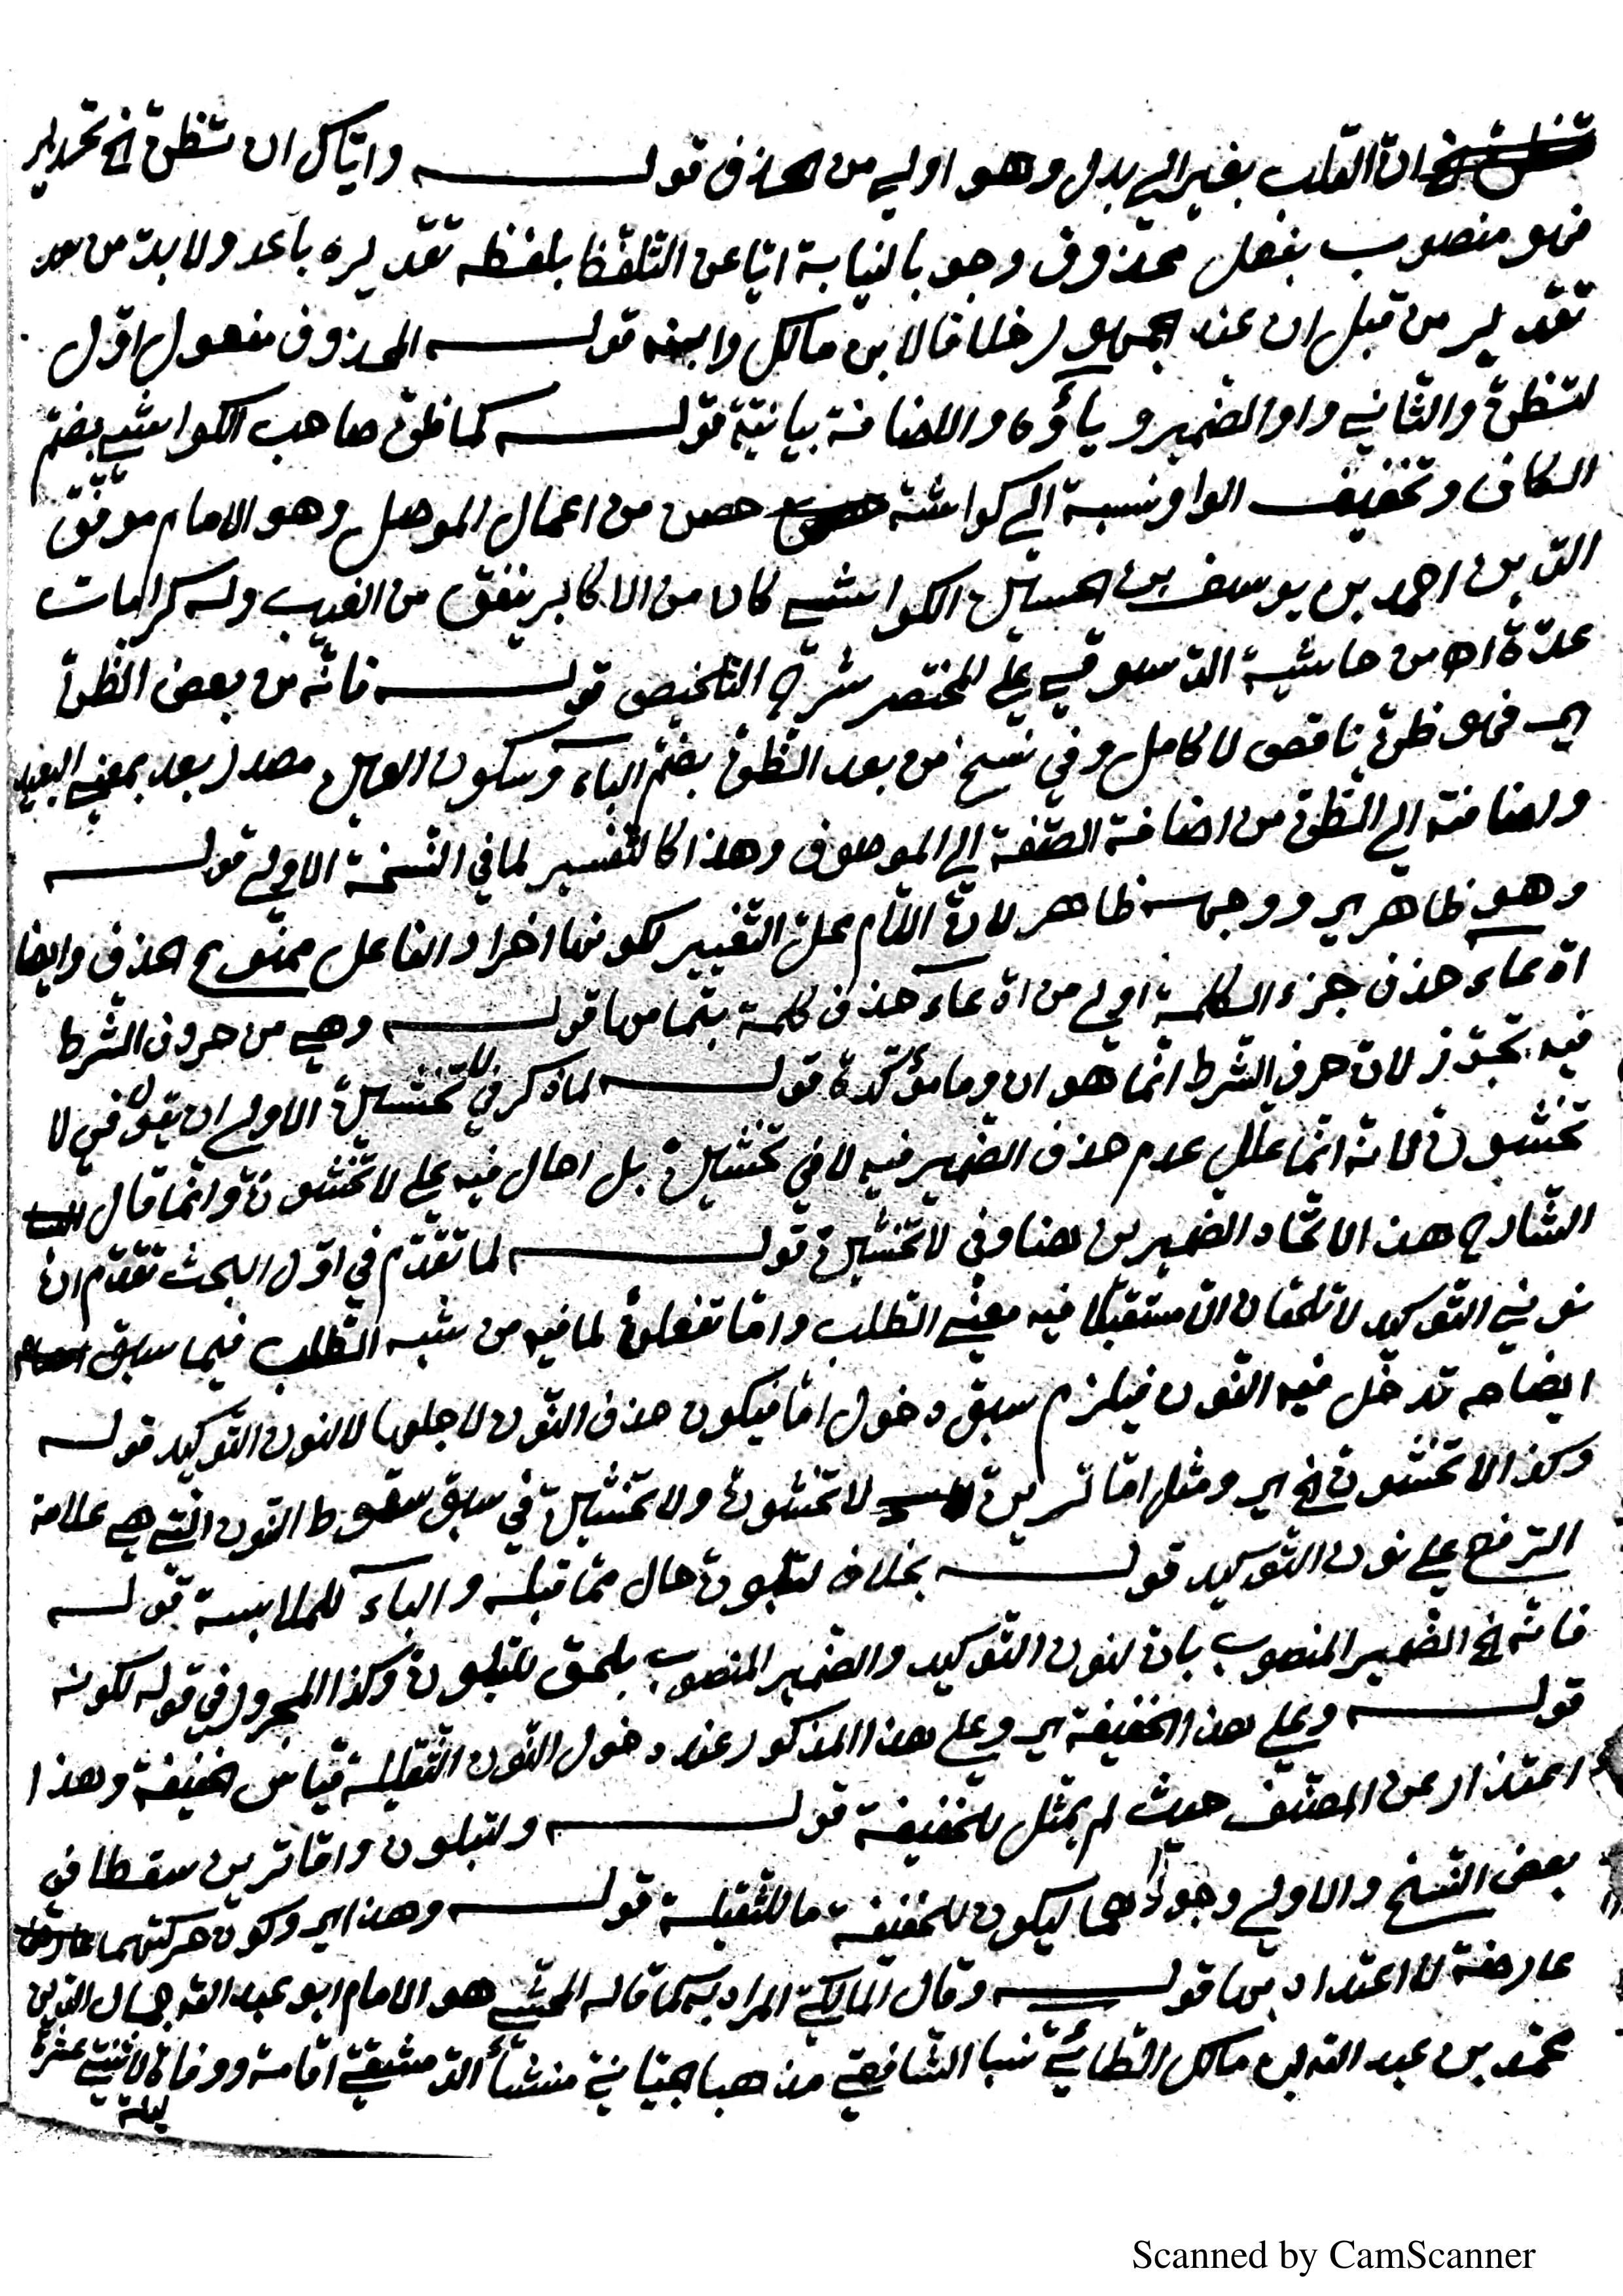 ان القلب بغير الي بدل وهو اولي من الحذف قولـــه واياك ان تظن الخ تحذير
فهو منصوب بفعل محذوف وجوبا لنيابة ايا عن التلفظ بلفظه تقديره باعد ولا بد من
تقدير من قبل ان عند الجمهور خلافا لابن مالك وابنه قولـــه المحذوف مفعول اول
لتظن والثاني واو الضمير وياؤه والاضافة بيانية قولـــه كما ظن صاحب الكواشي بضم
الكاف وتخفيف الواو نسبة الي كواشة حصن من اعمال الموصل وهو الامام موفق
الدين احمد بن يوسف بن الحسين الكواشي كان من الاكابر ينفق من الغيب وله كرامات
عدة اه من حاشية الدسوقي علي المختصر شرح التلخيص قولـــه فانه من بعض الظن
اي فهو ظن ناقص لا كامل وفي نسخ من بعد الظن بضم الباء وسكون العين مصدر بعد بمعني البعيد
واضافته الي الظن من اضافة الصفة الي الموصوف وهذا كالتفسير لما في النسخة الاولي قولـــه
وهو ظاهر اي ووجهه ظاهر لان اللام محل التغيير لكونها اخرا والفاعل ممنوع الحذف وايضا
ادعاء حذف جزء الكلمة اولي من ادعاء حذف كلمة بتمامها قولـــه وهي من حروف الشرط
فيه تجوز لان حرف الشرط انما هو ان وما مؤكدة قولـــه لما ذكر في لا تخشين الاولي ان يقول في لا
تخشون لانه انما علل عدم حذف الضمير فيه لا في تخشين بل احال فيه علي لا تخشون وانما قال
الشارح هذا لاتحاد الضميرين هنا وفي لا تخشين قولـــه لما تقدم في اول البحث تقدم ان
نوني التوكيد لا تلحقان الا مستقبلا فيه معني الطلب واما تفعلن لما فيه من شبه الطلب فيما سبق
ايضاحه تدخل فيه النون فيلزم سبق دخول اما فيكون حذف النون لاجلها لا لنون التوكيد قولـــه
وكذا لا تخشون الخ اي ومثل اما ترين لا تخشون ولا تخشين في سبق سقوط النون التي هي علامة
الرفع علي نون التوكيد قولـــه بخلاف لتبلون حال مما قبله والباء للملابسة قولـــه
فانه الخ الضمير المنصوب بان لنون التوكيد والضمير المنصوب بلحق للتبلون وكذا المجرور في قوله لكونه
قولـــه وعلي هذا الخفيفة اي وعلي هذا المذكور عند دخول النون الثقيلة قياس الخفيفة وهذا
اعتذار عن المصنف حيث لم يمثل للخفيفة قولـــه ولتبلون واما ترين سقطا في
بعض النسخ والاولي وجودهما ليكون للخفيفة ما للثقيلة قولـــه وهذا اي وكون حركتهما
عارضة لا اعتداد بها قولـــه وقال المالكي المراد به كما قاله المحشي هو الامام ابو عبد الله جمال الدين
محمد بن عبد الله بن مالك الطائي نسبا الشافعي مذهبا الجياني منشأ الدمشقي اقامة ووفاة لاثنتي عشرة
ليلة
Scanned by CamScanner